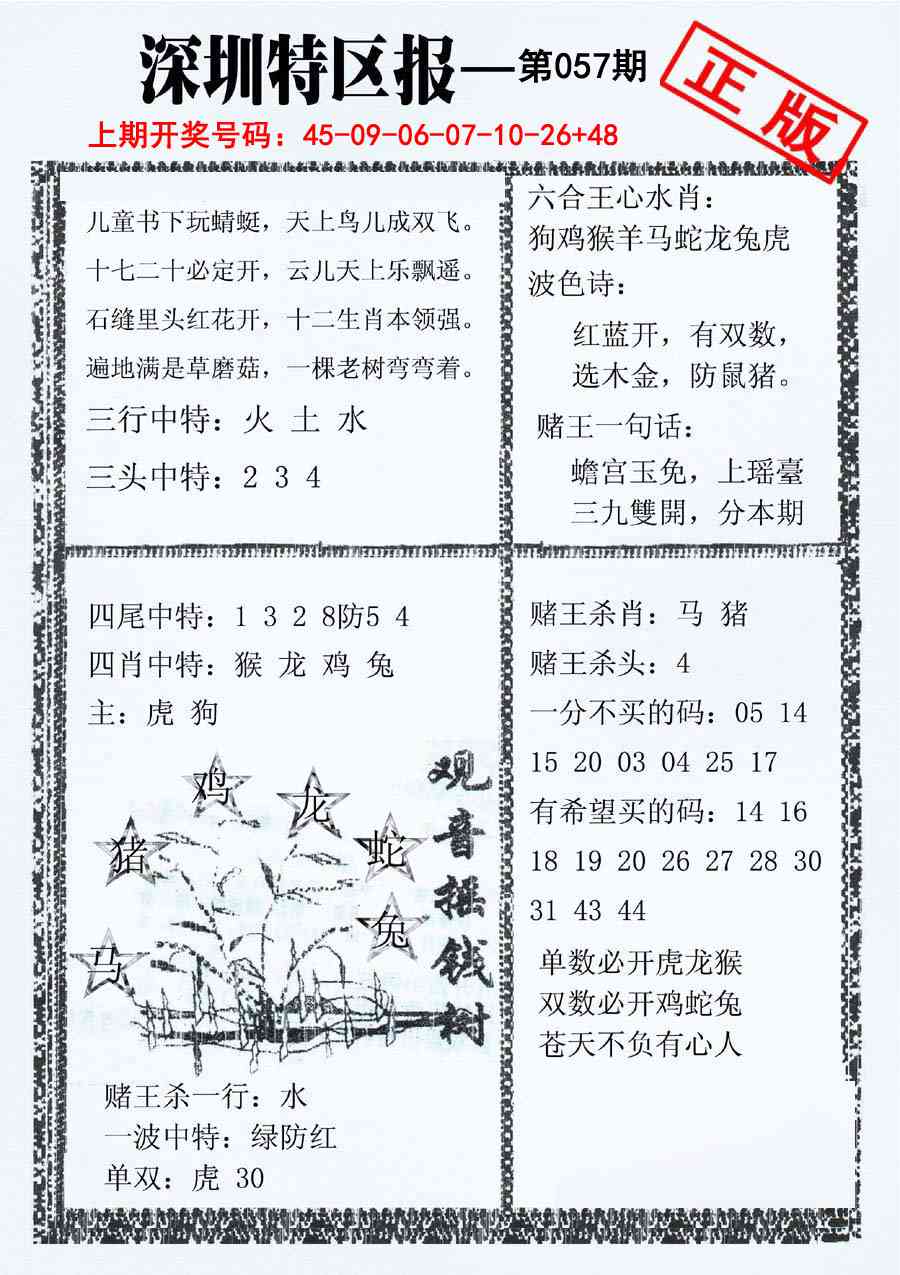 深圳特区报—第057期
正版
上期开奖号码：45-09-06-07-10-26+48
儿童书下玩蜻蜓，天上鸟儿成双飞。
十七二十必定开，云儿天上乐飘遥。
石缝里头红花开，十二生肖本领强。
遍地满是草磨菇，一棵老树弯弯着。
三行中特：火 土 水
三头中特：2 3 4
六合王心水肖：
狗鸡猴羊马蛇龙兔虎
波色诗：
红蓝开，有双数，
选木金，防鼠猪。
赌王一句话：
蟾宫玉免，上瑶臺
三九雙開，分本期
四尾中特：1 3 2 8防5 4
四肖中特：猴 龙 鸡 兔
主：虎 狗
鸡
龙
猪
蛇
兔
马
观音摇钱树
赌王杀一行：水
一波中特：绿防红
单双：虎 30
赌王杀肖：马 猪
赌王杀头：4
一分不买的码：05 14
15 20 03 04 25 17
有希望买的码：14 16
18 19 20 26 27 28 30
31 43 44
单数必开虎龙猴
双数必开鸡蛇兔
苍天不负有心人